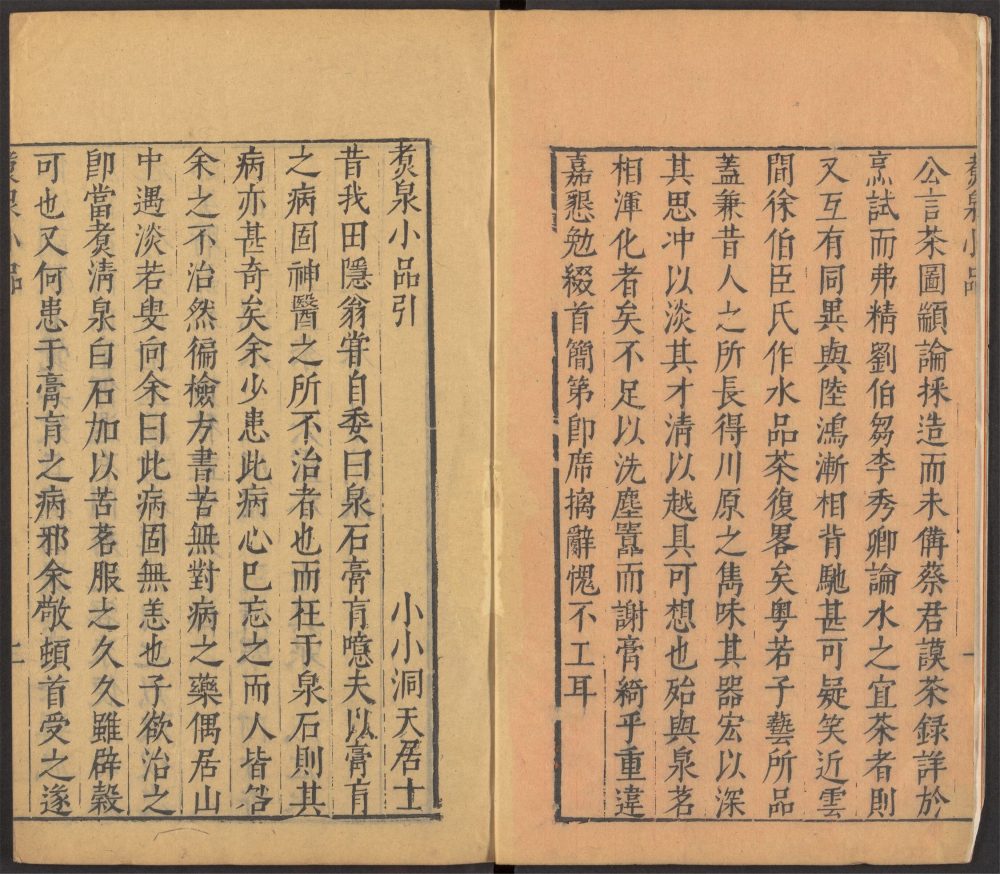 公言茶圖顓論採造而未備蔡君謨茶録詳於
烹試而弗精劉伯芻李秀卿論水之宜茶者則
又互有同異與陸鴻漸相背馳甚可疑笑近雲
間徐伯臣氏作水品茶復畧矣粵若子藝所品
蓋兼昔人之所長得川原之雋味其器宏以深
其思冲以淡其才清以越具可想也殆與泉茗
相渾化者矣不足以洗塵囂而謝膏綺乎重違
嘉懇勉綴首簡第卽席摛辭愧不工耳
煑泉小品引
小小洞天居士
昔我田隱翁甞自委曰泉石膏肓噫夫以膏肓
之病固神醫之所不治者也而在于泉石則其
病亦甚奇矣余少患此病心已忘之而人皆咎
余之不治然徧檢方書苦無對病之藥偶居山
中遇淡若叟向余曰此病固無恙也子欲治之
卽當煑清泉白石加以苦茗服之久久雖辟穀
可也又何患于膏肓之病邪余敬頓首受之遂